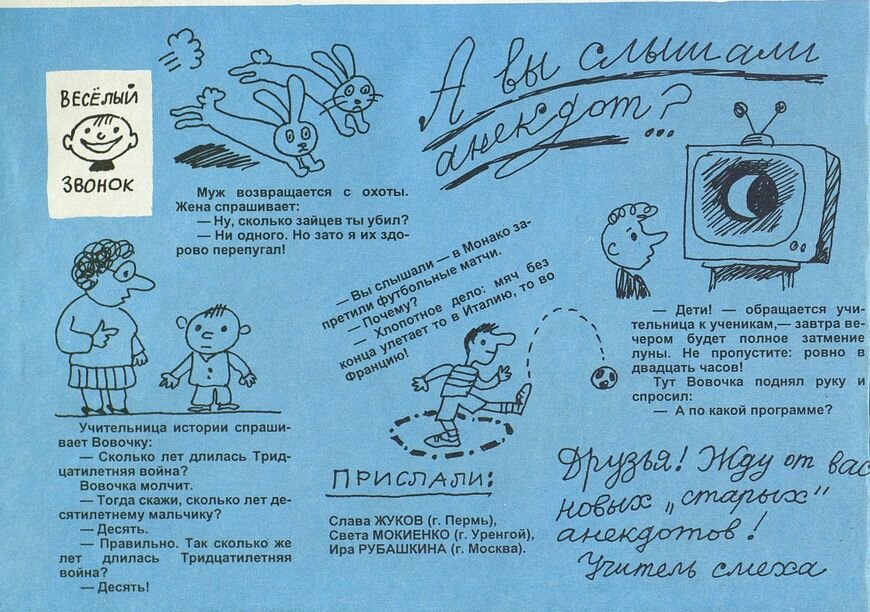 ВЕСЁЛЫЙ
ЗВОНОК
А вы слышали
анекдот?...
Муж возвращается с охоты.
Жена спрашивает:
— Ну, сколько зайцев ты убил?
— Ни одного. Но зато я их здо-
рово перепугал!
— Вы слышали — в Монако за-
претили футбольные матчи.
— Почему?
— Хлопотное дело: мяч без
конца улетает то в Италию, то во
Францию!
— Дети! — обращается учи-
тельница к ученикам,— завтра ве-
чером будет полное затмение
луны. Не пропустите: ровно в
двадцать часов!
Тут Вовочка поднял руку и
спросил:
— А по какой программе?
Учительница истории спраши-
вает Вовочку:
— Сколько лет длилась Трид-
цатилетняя война?
Вовочка молчит.
— Тогда скажи, сколько лет де-
сятилетнему мальчику?
— Десять.
— Правильно. Так сколько же
лет длилась Тридцатилетняя
война?
— Десять!
ПРИСЛАЛИ:
Слава ЖУКОВ (г. Пермь),
Света МОКИЕНКО (г. Уренгой),
Ира РУБАШКИНА (г. Москва).
Друзья! Жду от вас
новых „старых"
анекдотов!
Учитель смеха